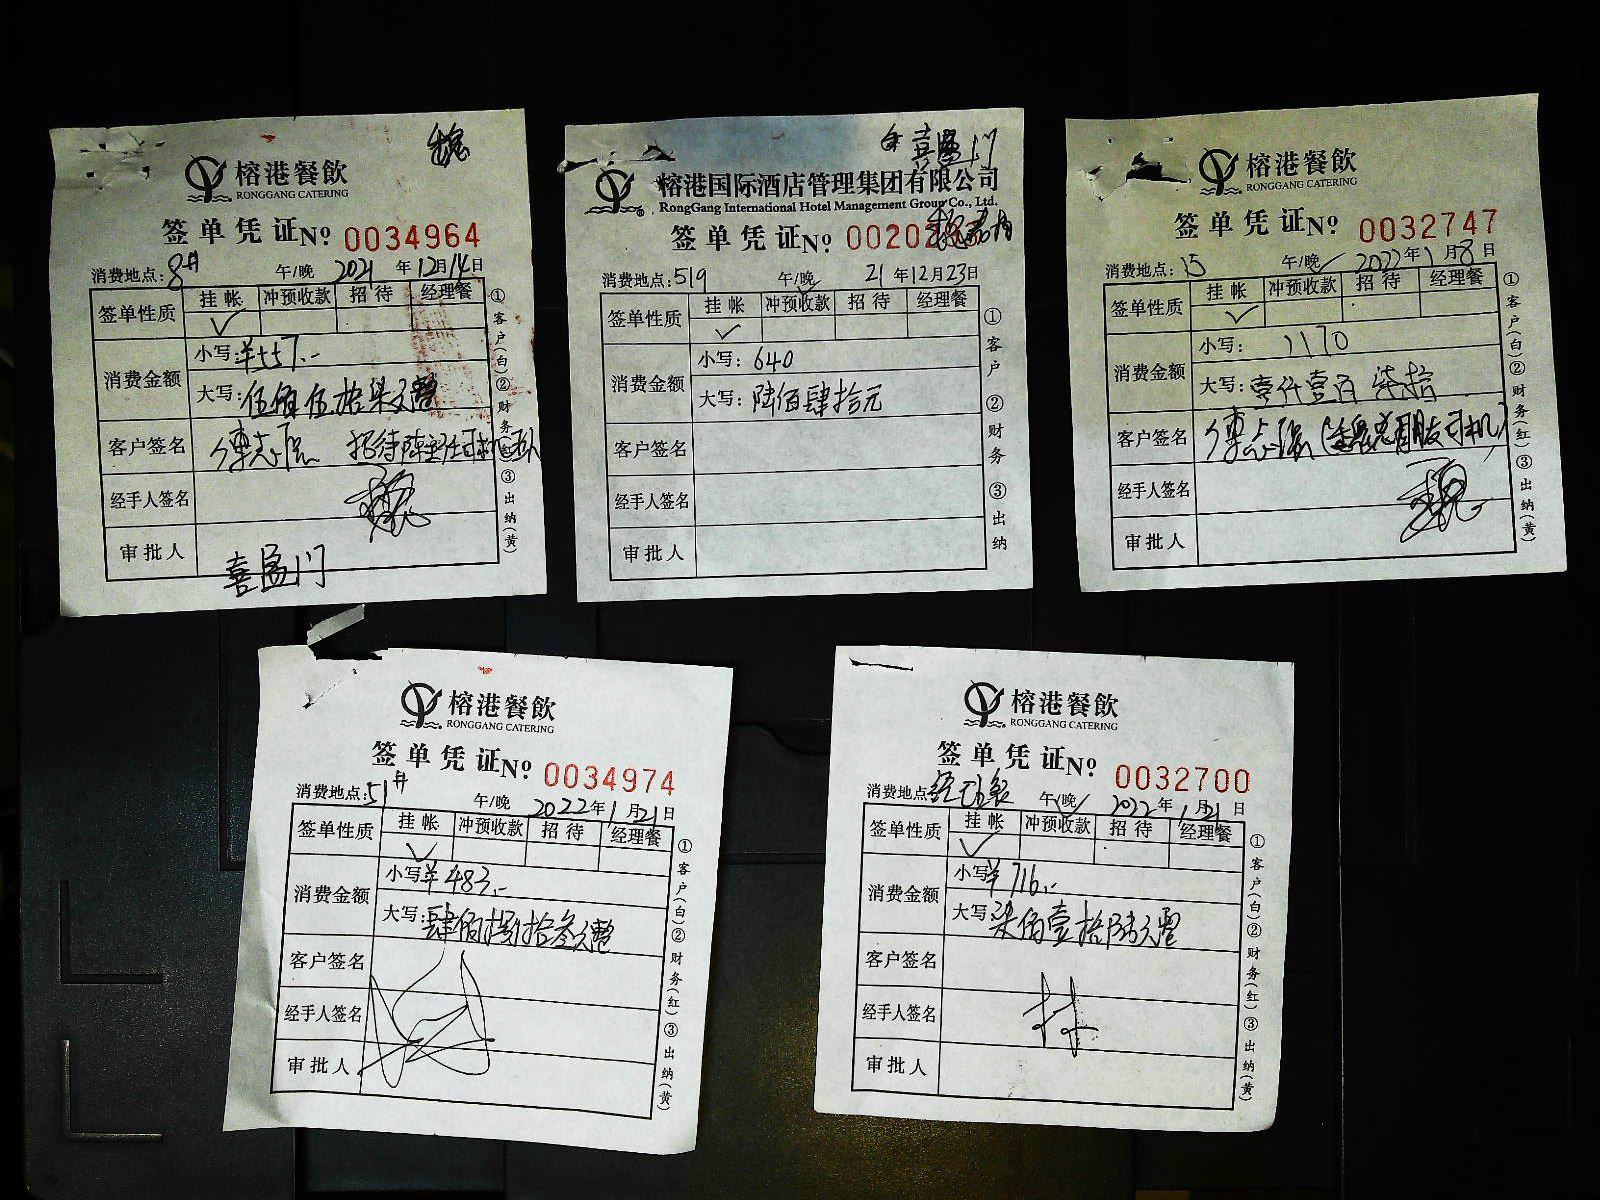 榕港餐飲
RONGGANG CATERING
签单凭证№ 0034964
消费地点:8# 午/晚 2021年12月14日
签单性质 挂帐 冲预收款 招待 经理餐
✓
消费金额 小写:¥557.-
大写:伍佰伍拾柒元整
客户签名 傅志 招待陈
经手人签名
审批人
喜盈门
①客户(白)②财务(红)③出纳(黄)
喜盈门
榕港国际酒店管理集团有限公司
RongGang International Hotel Management Group Co., Ltd.
签单凭证№ 00202
消费地点:519 午/晚 21年12月23日
签单性质 挂帐 冲预收款 招待 经理餐
✓
消费金额 小写:640
大写:陆佰肆拾元
客户签名
经手人签名
审批人
①客户 ②财务 ③出纳
榕港餐飲
RONGGANG CATERING
签单凭证№ 0032747
消费地点:15 午/晚✓ 2022年1月8日
签单性质 挂帐 冲预收款 招待 经理餐
✓
消费金额 小写:1170
大写:壹仟壹百柒拾
客户签名 傅志 朋友司机)
经手人签名
审批人
①客户(白)②财务(红)③出纳(黄)
榕港餐飲
RONGGANG CATERING
签单凭证№ 0034974
消费地点:51# 午/晚 2022年1月21日
签单性质 挂帐 冲预收款 招待 经理餐
✓
消费金额 小写¥483.-
大写:肆佰捌拾叁元整
客户签名
经手人签名
审批人
①客户(白)②财务(红)③出纳(黄)
榕港餐飲
RONGGANG CATERING
签单凭证№ 0032700
消费地点 午/晚✓ 2022年1月21日
签单性质 挂帐 冲预收款 招待 经理餐
✓
消费金额 小写¥716.-
大写:柒佰壹拾陆元整
客户签名
经手人签名
审批人
①客户(白)②财务(红)③出纳(黄)